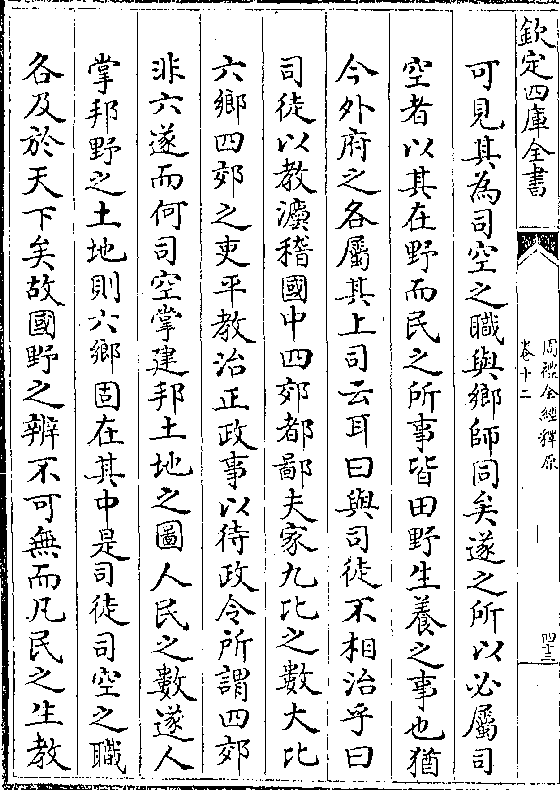 欽定四庫全書
周禮全經釋原
卷十二
四十三
可見其為司空之職與鄉師同矣遂之所以必屬司
空者以其在野而民之所事皆田野生養之事也猶
今外府之各屬其上司云耳曰與司徒不相治乎曰
司徒以教灋稽國中四郊都鄙夫家九比之數大比
六鄉四郊之吏平教治正政事以待政令所謂四郊
非六遂而何司空掌建邦土地之圖人民之數遂人
掌邦野之土地則六鄉固在其中是司徒司空之職
各及於天下矣故國野之辨不可無而凡民之生教